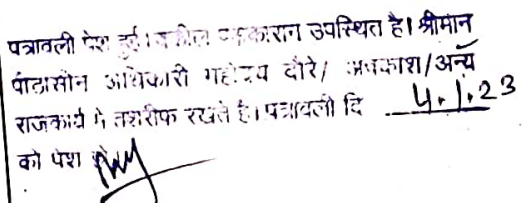 पत्रावली पेश हुई। वकील पक्षकारान उपस्थित है। श्रीमान
पीठासीन अधिकारी महोदय दौरे/ अवकाश/अन्य
राजकार्य मे तशरीफ रखते है। पत्रावली दि 4.1.23
को पेश हो